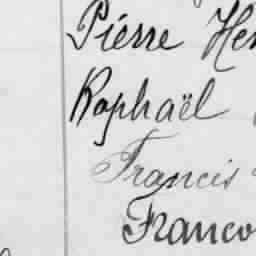 Piérre Hen
Raphaël
Francis
Franco